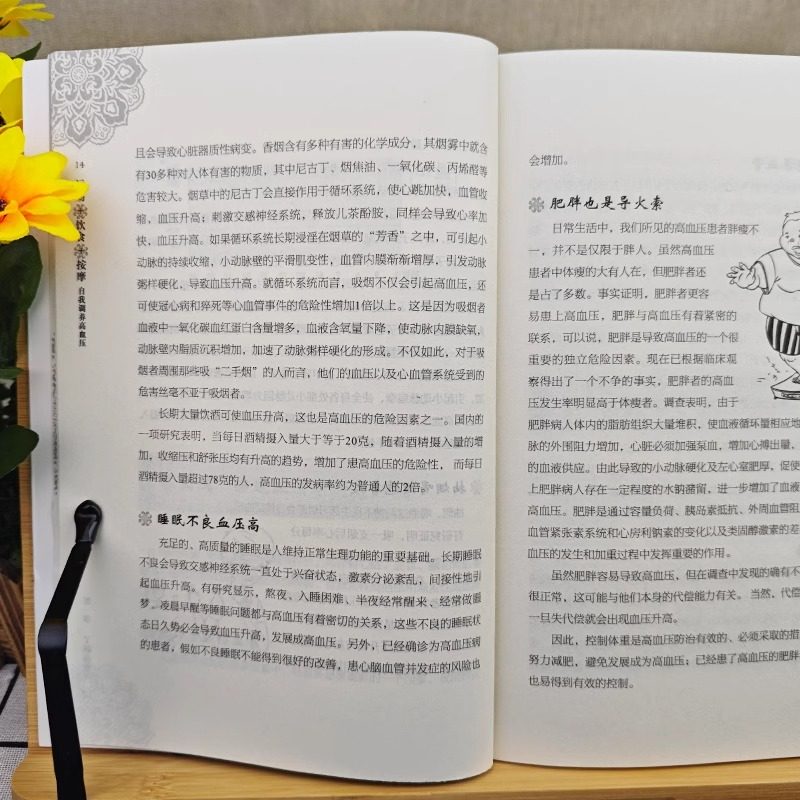 且会导致心脏器质性病变。香烟含有多种有害的化学成分，其烟雾中就含
有30多种对人体有害的物质，其中尼古丁、烟焦油、一氧化碳、丙烯醛等
危害较大。烟草中的尼古丁会直接作用于循环系统，使心跳加快，血管收
缩，血压升高；刺激交感神经系统，释放儿茶酚胺，同样会导致心率加
快，血压升高。如果循环系统长期浸淫在烟草的“芳香”之中，可引起小
动脉的持续收缩，小动脉壁的平滑肌变性，血管内膜渐渐增厚，引发动脉
粥样硬化，导致血压升高。就循环系统而言，吸烟不仅会引起高血压，还
可使冠心病和猝死等心血管事件的危险性增加1倍以上。这是因为吸烟者
血液中一氧化碳血红蛋白含量增多，血液含氧量下降，使动脉内膜缺氧，
动脉壁内脂质沉积增加，加速了动脉粥样硬化的形成。不仅如此，对于吸
烟者周围那些吸“二手烟”的人而言，他们的血压以及心血管系统受到的
危害丝毫不亚于吸烟者。
长期大量饮酒可使血压升高，这也是高血压的危险因素之一。国内的
一项研究表明，当每日酒精摄入量大于等于20克，随着酒精摄入量的增
加，收缩压和舒张压均有升高的趋势，增加了患高血压的危险性， 而每日
酒精摄入量超过78克的人，高血压的发病率约为普通人的2倍。
睡眠不良血压高
充足的、高质量的睡眠是人维持正常生理功能的重要基础。长期睡眠
不良会导致交感神经系统一直处于兴奋状态，激素分泌紊乱，间接性地引
起血压升高。有研究显示，熬夜、入睡困难、半夜经常醒来、经常做噩
梦、凌晨早醒等睡眠问题都与高血压有着密切的关系，这些不良的睡眠状
态日久势必会导致血压升高，发展成高血压。另外，已经确诊为高血压病
的患者，假如不良睡眠不能得到很好的改善，患心脑血管并发症的风险也
14
饮食
按摩
自我调养高血压
会增加。
肥胖也是导火索
日常生活中，我们所见的高血压患者胖瘦不
一，并不是仅限于胖人。虽然高血压
患者中体瘦的大有人在，但肥胖者还
是占了多数。事实证明，肥胖者更容
易患上高血压，肥胖与高血压有着紧密的
联系，可以说，肥胖是导致高血压的一个很
重要的独立危险因素。现在已根据临床观
察得出了一个不争的事实，肥胖者的高血
压发生率明显高于体瘦者。调查表明，由于
肥胖病人体内的脂肪组织大量堆积，使血液循环量相应地
脉的外围阻力增加，心脏必须加强泵血，增加心搏出量，
的血液供应。由此导致的小动脉硬化及左心室肥厚，促使
上肥胖病人存在一定程度的水钠潴留，进一步增加了血液
高血压。肥胖是通过容量负荷、胰岛素抵抗、外周血管阻
血管紧张素系统和心房利钠素的变化以及类固醇激素的差
血压的发生和加重过程中发挥重要的作用。
虽然肥胖容易导致高血压，但在调查中发现的确有不
很正常，这可能与他们本身的代偿能力有关。 当然，代偿
一旦失代偿就会出现血压升高。
因此，控制体重是高血压防治有效的、必须采取的措
努力减肥，避免发展成为高血压；已经患了高血压的肥胖
也易得到有效的控制。